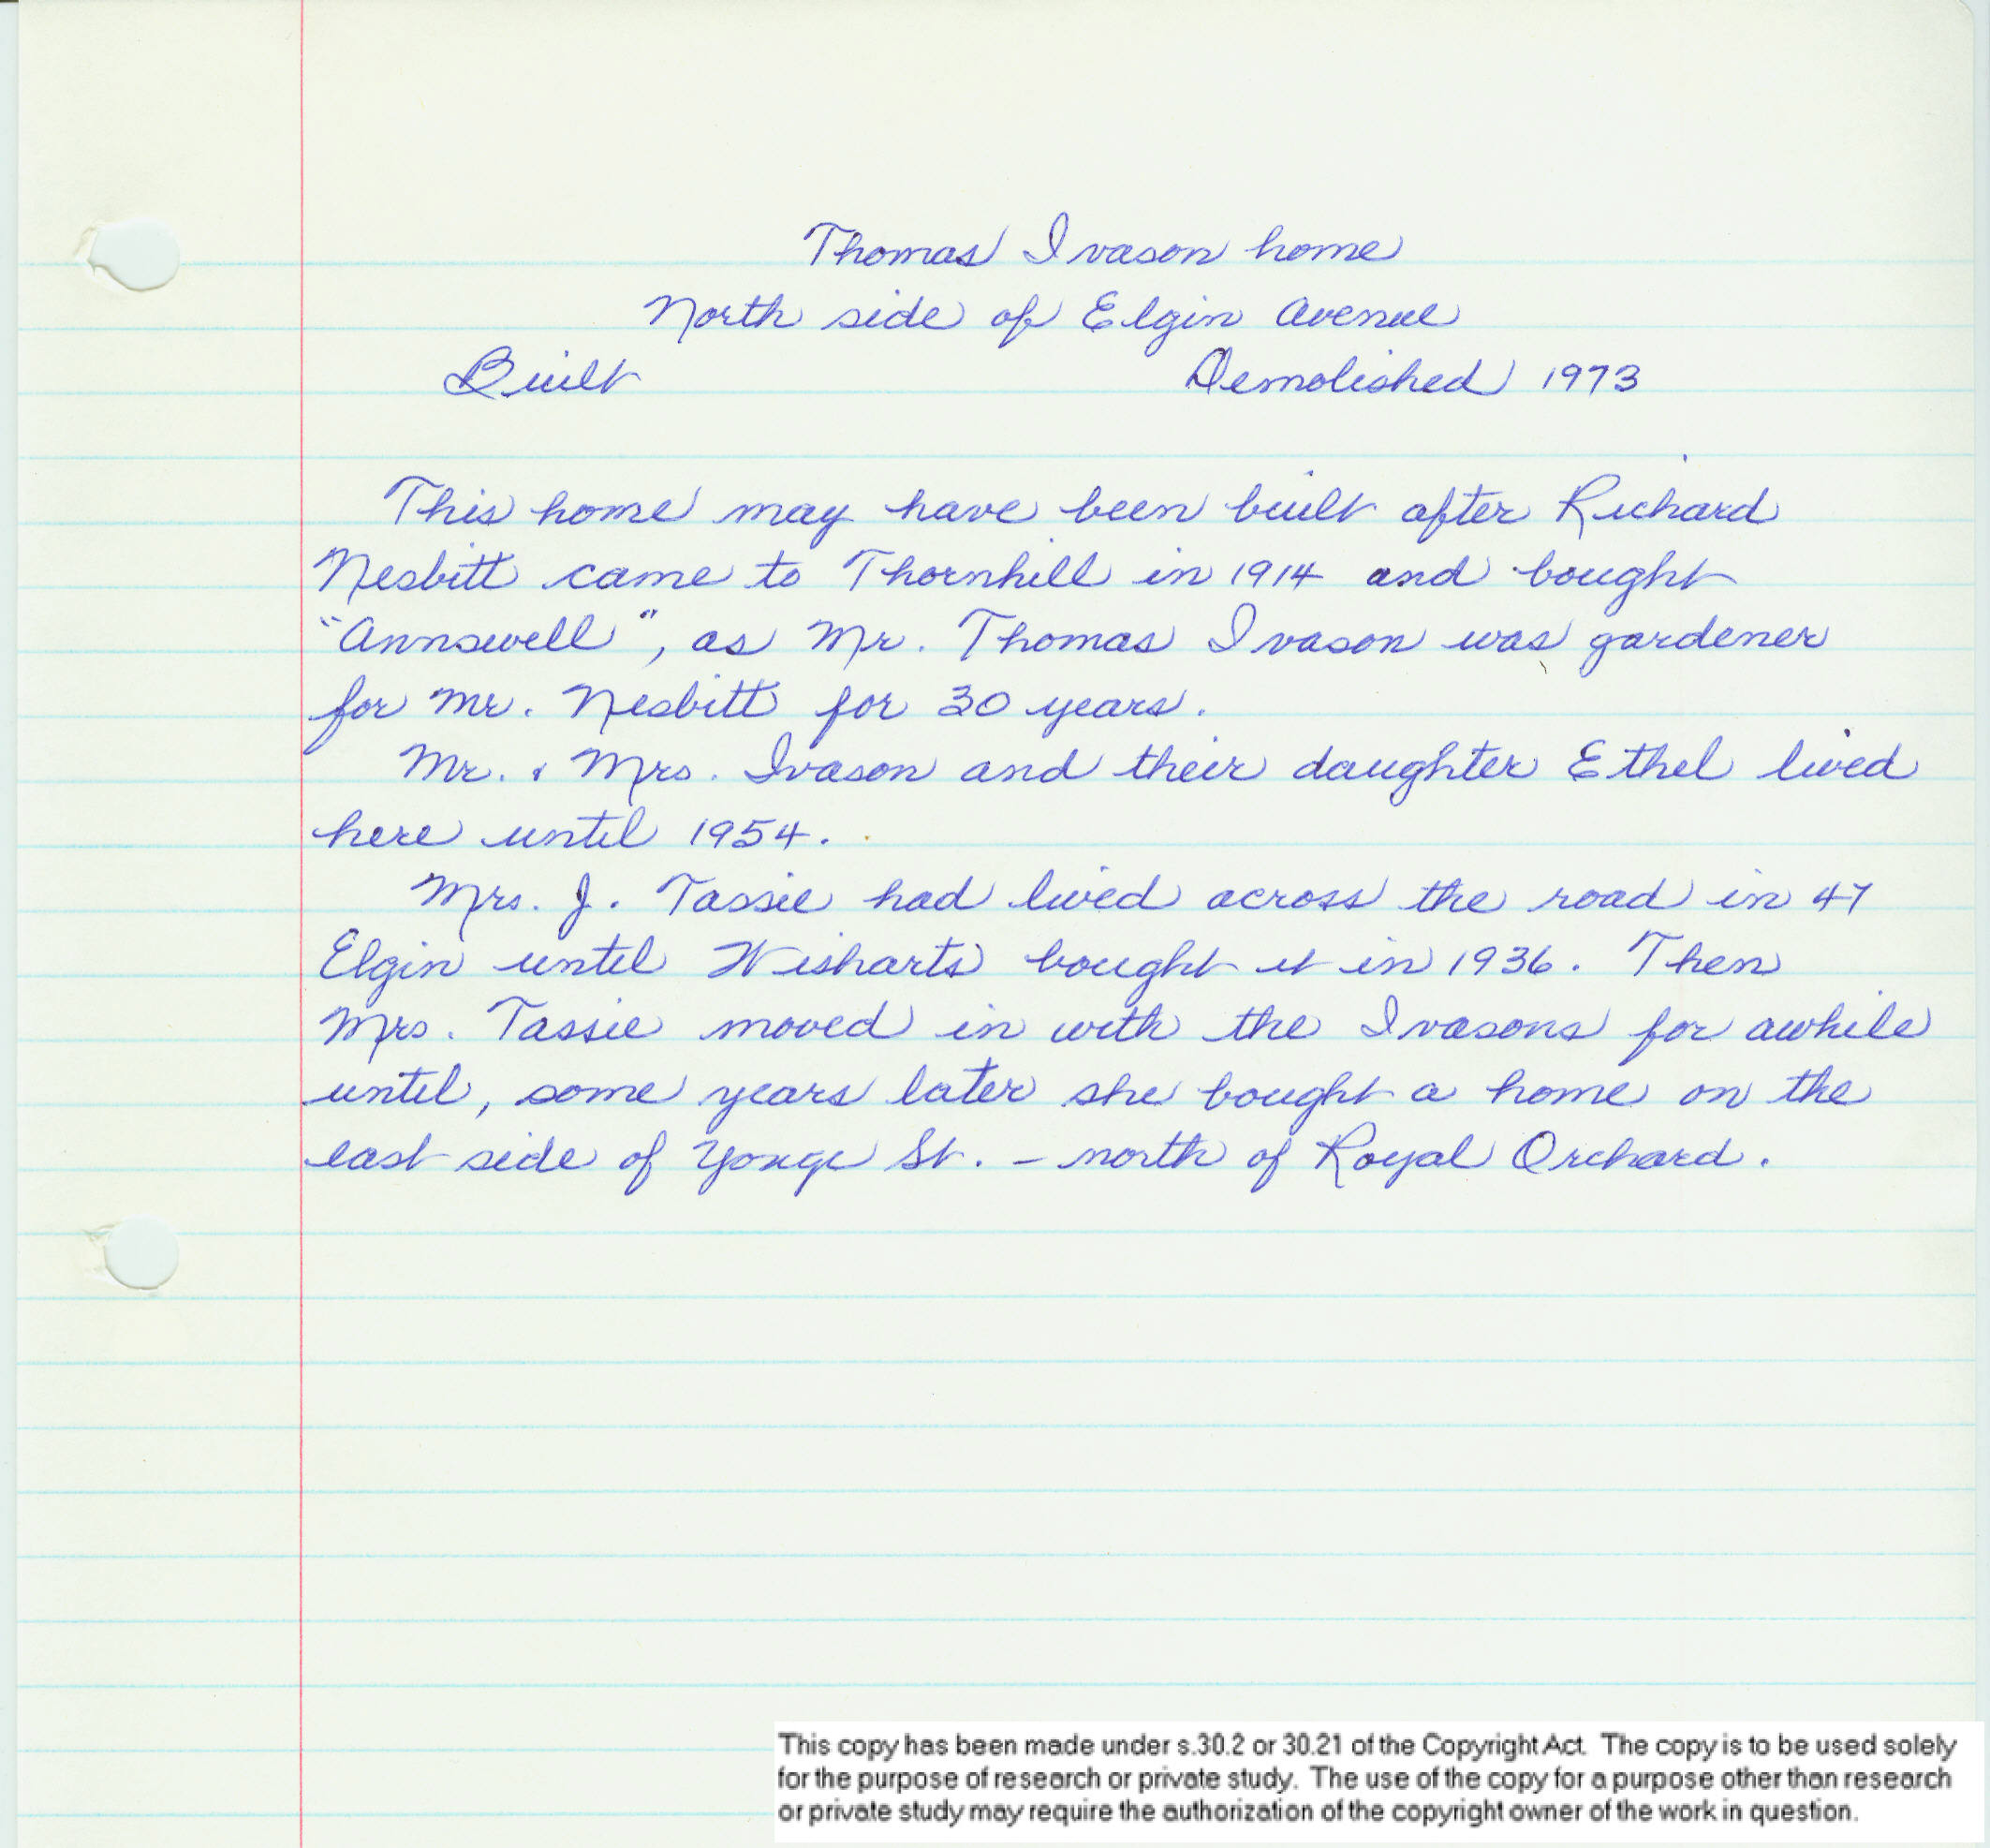 Thomas Ivason home
North side of Elgin Avenue
Built Demolished 1973
This home may have been built after Richard
Nesbitt came to Thornhill in 1914 and bought
"Annswell", as Mr. Thomas Ivason was gardener
for Mr. Nesbitt for 30 years.
Mr. & Mrs. Ivason and their daughter Ethel lived
here until 1954.
Mrs. J. Tassie had lived across the road in 47
Elgin until Wisharts bought it in 1936. Then
Mrs. Tassie moved in with the Ivasons for awhile
until, some years later she bought a home on the
east side of Yonge St. - north of Royal Orchard.
This copy has been made under s.30.2 or 30.21 of the Copyright Act. The copy is to be used solely
for the purpose of research or private study. The use of the copy for a purpose other than research
or private study may require the authorization of the copyright owner of the work in question.